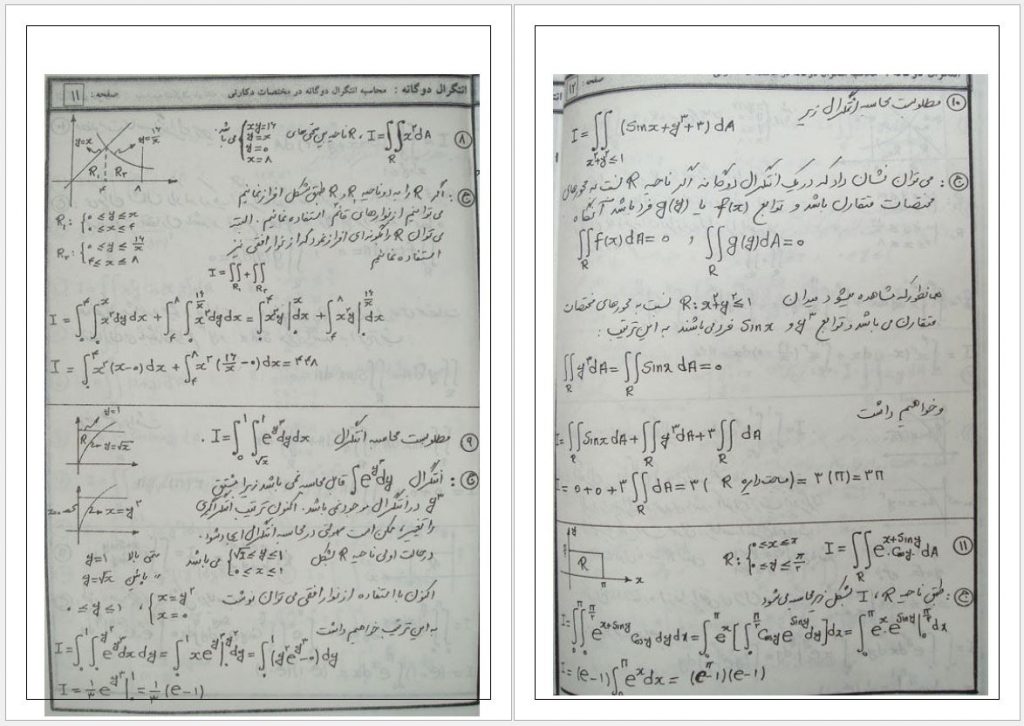 انتگرال دوگانه : محاسبه انتگرال دوگانه در مختصات دکارتی صفحه: ۱۱
۸) I=∬_R x²dA ، R ناحیه بین منحنی‌های {xy=۱۶ , y=x , y=۰ , x=۸ می باشد
y=x
y=۱۶/x
R₁ R₂
۴ ۸
ج: اگر R را به دو ناحیه R₁ و R₂ طبق شکل افراز نمائیم
می توانیم از نوارهای قائم استفاده نمائیم. البته
می توان R را بگونه‌ای افراز نمود که از نوار افقی نیز
استفاده نمائیم
R₁: {۰≤y≤x , ۰≤x≤۴
R₂: {۰≤y≤۱۶/x , ۴≤x≤۸
I=∬_R₁+∬_R₂
I = ∫₀^۴∫₀^x x²dydx + ∫₄^۸∫₀^(۱۶/x) x²dydx = ∫₀^۴ x²y|₀^x dx + ∫₄^۸ x²y|₀^(۱۶/x) dx
I = ∫₀^۴ x²(x-۰)dx + ∫₄^۸ x²(۱۶/x -۰)dx = ۴۴۸
۹) مطلوبست محاسبه انتگرال I=∫₀^۱∫_√x^۱ e^(y³)dydx .
y=۱
R
y=√x
ج: انتگرال ∫e^(y³)dy قابل محاسبه نمی باشد زیرا مشتق
y³ در انتگرال موجود نمی باشد. اکنون ترتیب انتگرالگیری
را تغییر، ممکن است سهولتی در محاسبه انتگرال ایجاد شود.
x=۰
x=y²
در حالت اولی ناحیه R بشکل {√x≤y≤۱ , ۰≤x≤۱ می باشد
منحنی بالا y=۱
" پایین y=√x
اکنون با استفاده از نوار افقی می توان نوشت {x=y² , x=۰ ، ۰≤y≤۱
به این ترتیب خواهیم داشت
I=∫₀^۱∫₀^(y²) e^(y³)dxdy = ∫₀^۱ xe^(y³)|₀^(y²) dy = ∫₀^۱ (y²e^(y³)-۰)dy
I = ۱/۳ e^(y³)|₀^۱ = ۱/۳ (e-۱)
صفحه: ۱۲
۱۰) مطلوبست محاسبه انتگرال زیر
I=∬_(x²+y²≤۱) (Sinx+y³+۳)dA
ج: می توان نشان داد که در یک انتگرال دوگانه اگر ناحیه R نسبت به محورهای
مختصات متقارن باشد و توابع f(x) یا g(y) فرد باشد آنگاه
∬_R f(x)dA=۰ , ∬_R g(y)dA=۰
همانطور که مشاهده میشود در میدان R: x²+y²≤۱ نسبت به محورهای مختصات
متقارن می باشد و توابع y³ و Sinx فرد می باشند به این ترتیب :
∬_R y³dA = ∬_R Sinx dA = ۰
و خواهیم داشت
I=∬_R SinxdA + ∬_R y³dA + ۳∬_R dA
I=۰+۰+۳∬_R dA = ۳ (مساحت دایره R) = ۳(π) = ۳π
۱۱) I=∬_R e^(x+Siny).Cosy dA R: {۰≤x≤π , ۰≤y≤π/۲
y
R
π x
ج: طبق ناحیه R، I بشکل زیر محاسبه می‌شود
I=∫₀^π∫₀^(π/۲) e^(x+Siny) Cosy dydx = ∫₀^π e^x[∫₀^(π/۲) Cosy e^(Siny) dy]dx = ∫₀^π e^x.e^(Siny)|₀^(π/۲) dx
I=(e-۱)∫₀^π e^x dx = (e^π-۱)(e-۱)